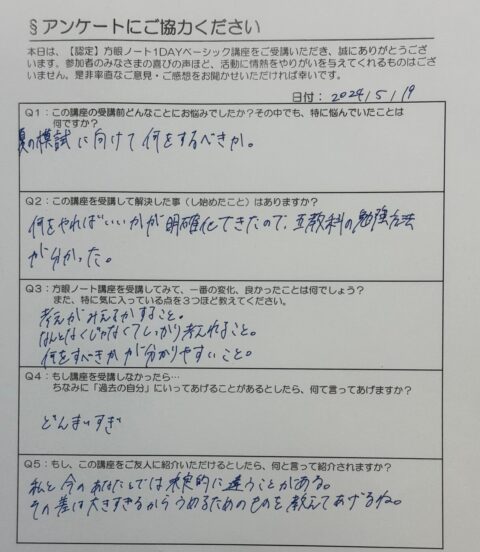 §アンケートにご協力ください
本日は、【認定】方眼ノート1DAYベーシック講座をご受講いただき、誠にありがとうござ
います。参加者のみなさまの喜びの声ほど、活動に情熱をやりがいを与えてくれるものはござ
いません。是非率直なご意見・ご感想をお聞かせいただければ幸いです。
日付：2024/5/19
Q1：この講座の受講前どんなことにお悩みでしたか？その中でも、特に悩んでいたことは
何ですか？
夏の模試に向けて何をするべきか。
Q2：この講座を受講して解決した事（し始めたこと）はありますか？
何をやればいいかが明確化できたので、五教科の勉強方法
が分かった。
Q3：方眼ノート講座を受講してみて、一番の変化、良かったことは何でしょう？
また、特に気に入っている点を３つほど教えてください。
考えがみえるかすること。
なんとなくじゃなくてしっかり考えれること。
何をすべきかが分かりやすいこと。
Q4：もし講座を受講しなかったら…
ちなみに「過去の自分」にいってあげることがあるとしたら、何て言ってあげますか？
どんまいすぎ
Q5：もし、この講座をご友人に紹介いただけるとしたら、何と言って紹介されますか？
私と今のあなたとでは決定的に違うことがある。
その差は大きすぎるからうめるためのものを教えてあげるね。